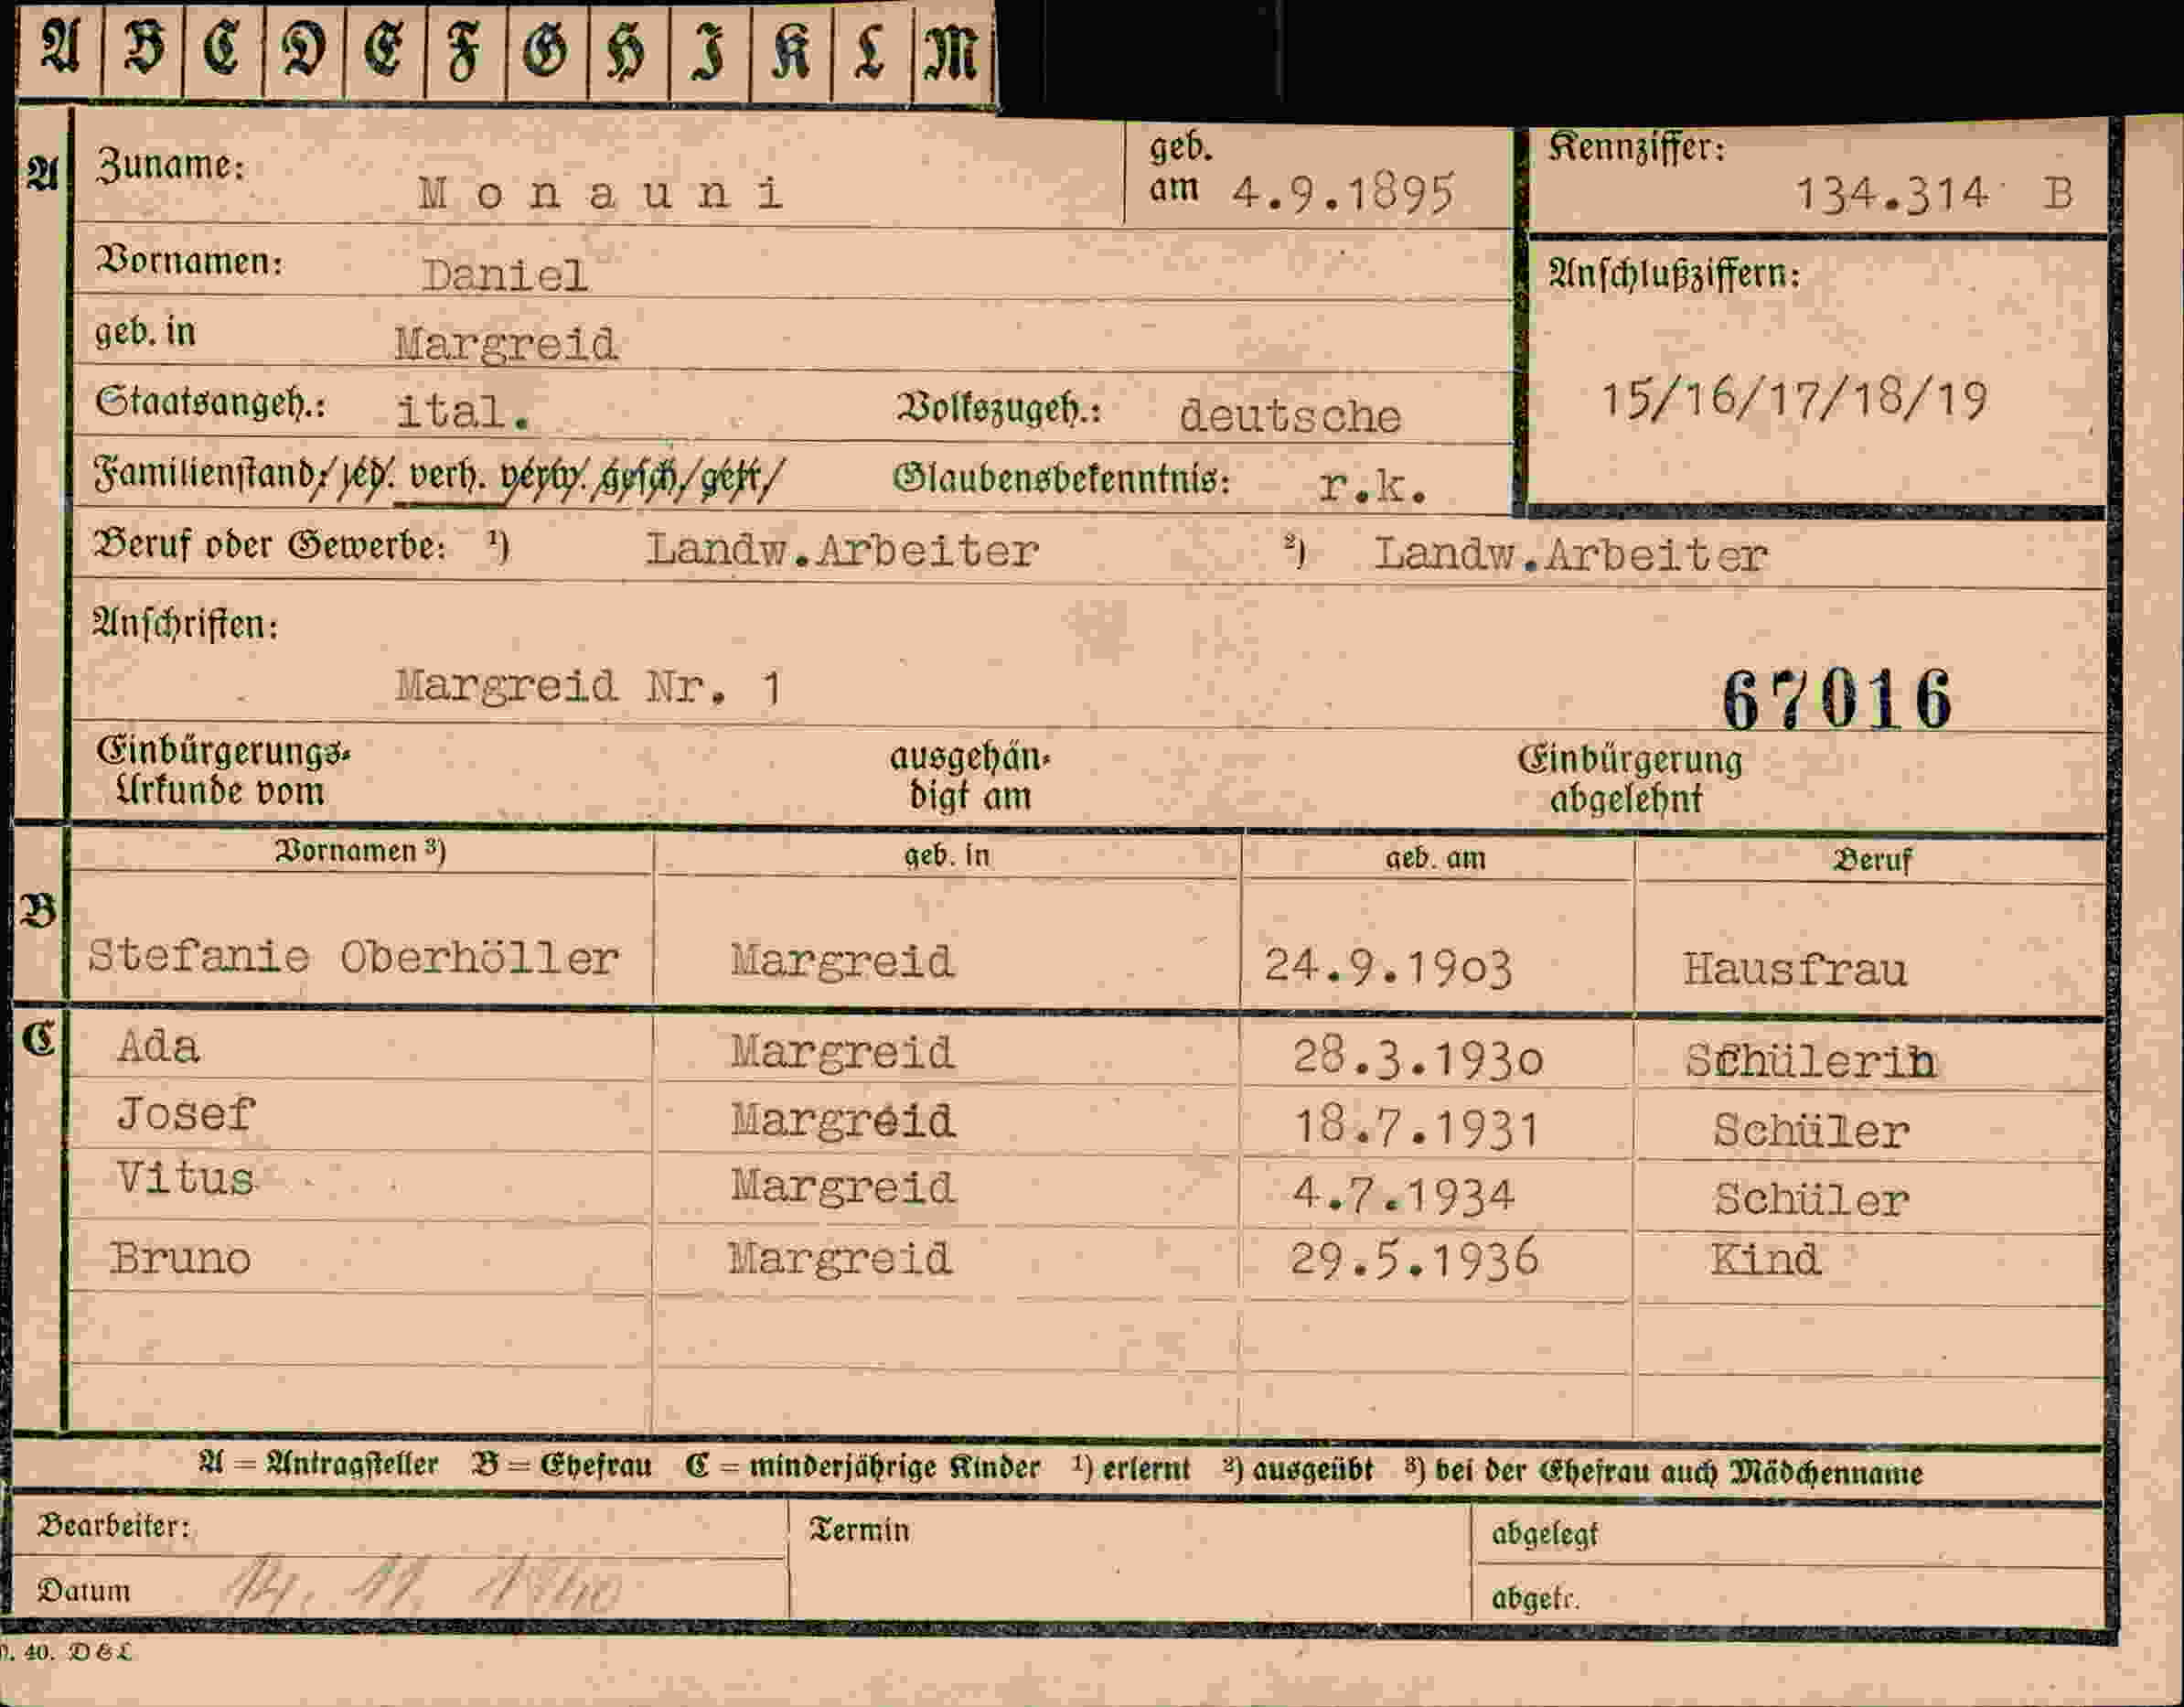 A B C D E F G H I K L M
A
Zuname: Monauni geb. am 4.9.1895 Kennziffer: 134.314 B
Vornamen: Daniel Anschlußziffern:
geb. in Margreid
15/16/17/18/19
Staatsangeh.: ital. Volkszugeh.: deutsche
Familienstand/led. verh. verw. gesch/getr/ Glaubensbekenntnis: r.k.
Beruf oder Gewerbe: ¹) Landw.Arbeiter ²) Landw.Arbeiter
Anschriften:
Margreid Nr. 1 67016
Einbürgerungs- ausgehän- Einbürgerung
Urkunde vom digt am abgelehnt
Vornamen ³) geb. in geb. am Beruf
B
Stefanie Oberhöller Margreid 24.9.19o3 Hausfrau
C
Ada Margreid 28.3.193o Schülerin
Josef Margreid 18.7.1931 Schüler
Vitus Margreid 4.7.1934 Schüler
Bruno Margreid 29.5.1936 Kind
A = Antragsteller B = Ehefrau C = minderjährige Kinder ¹) erlernt ²) ausgeübt ³) bei der Ehefrau auch Mädchenname
Bearbeiter: Termin abgelegt
Datum 14. 11. 1940 abgetr.
40. D&L